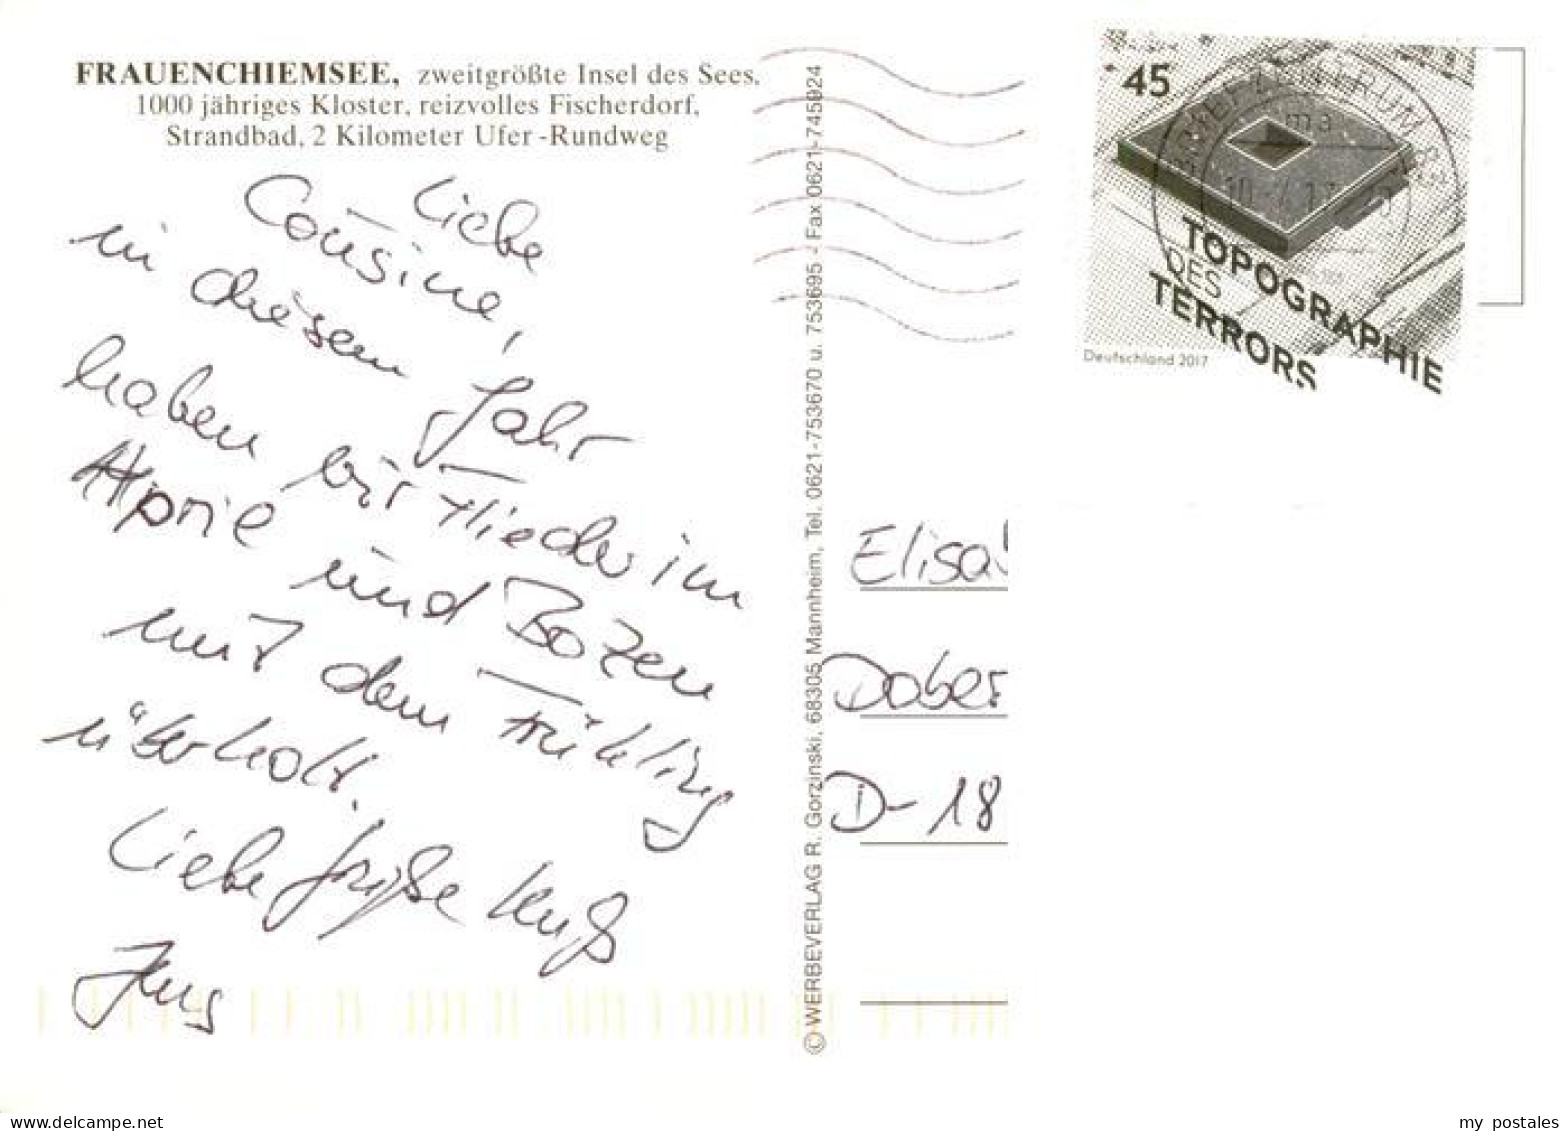 FRAUENCHIEMSEE, zweitgrößte Insel des Sees.
1000 jähriges Kloster, reizvolles Fischerdorf,
Strandbad, 2 Kilometer Ufer-Rundweg
Liebe
Cousine,
in diesem Jahr
haben wir Flieder im
April und Bozen
mit dem Frühling
überholt.
Liebe Grüße Kuß
Jens
© WERBEVERLAG R. Gorzinski, 68305 Mannheim, Tel. 0621-753670 u. 753695 - Fax 0621-745924
45
BRIEFZENTRUM 83
ma
TOPOGRAPHIE
DES
TERRORS
Deutschland 2017
Elisa
Dober
D-18
delcampe.net
my_postales